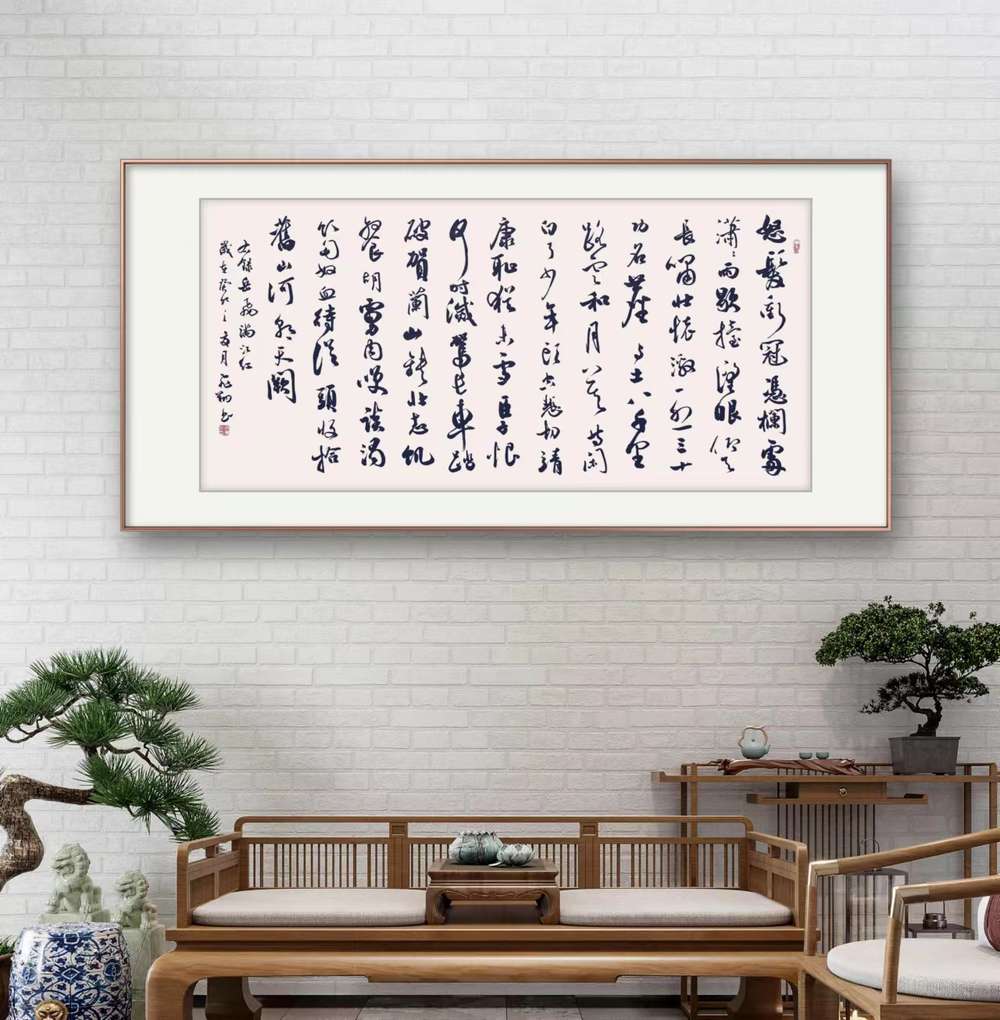 怒髮衝冠憑欄處
瀟瀟雨歇抬望眼仰天
長嘯壯懷激烈三十
功名塵與土八千里
路雲和月莫等閑
白了少年頭空悲切靖
康恥猶未雪臣子恨
何時滅駕長車踏
破賀蘭山缺壯志飢
餐胡虜肉笑談渴
飲匈奴血待從頭收拾
舊山河朝天闕
錄岳飛滿江紅
歲在癸卯之月書